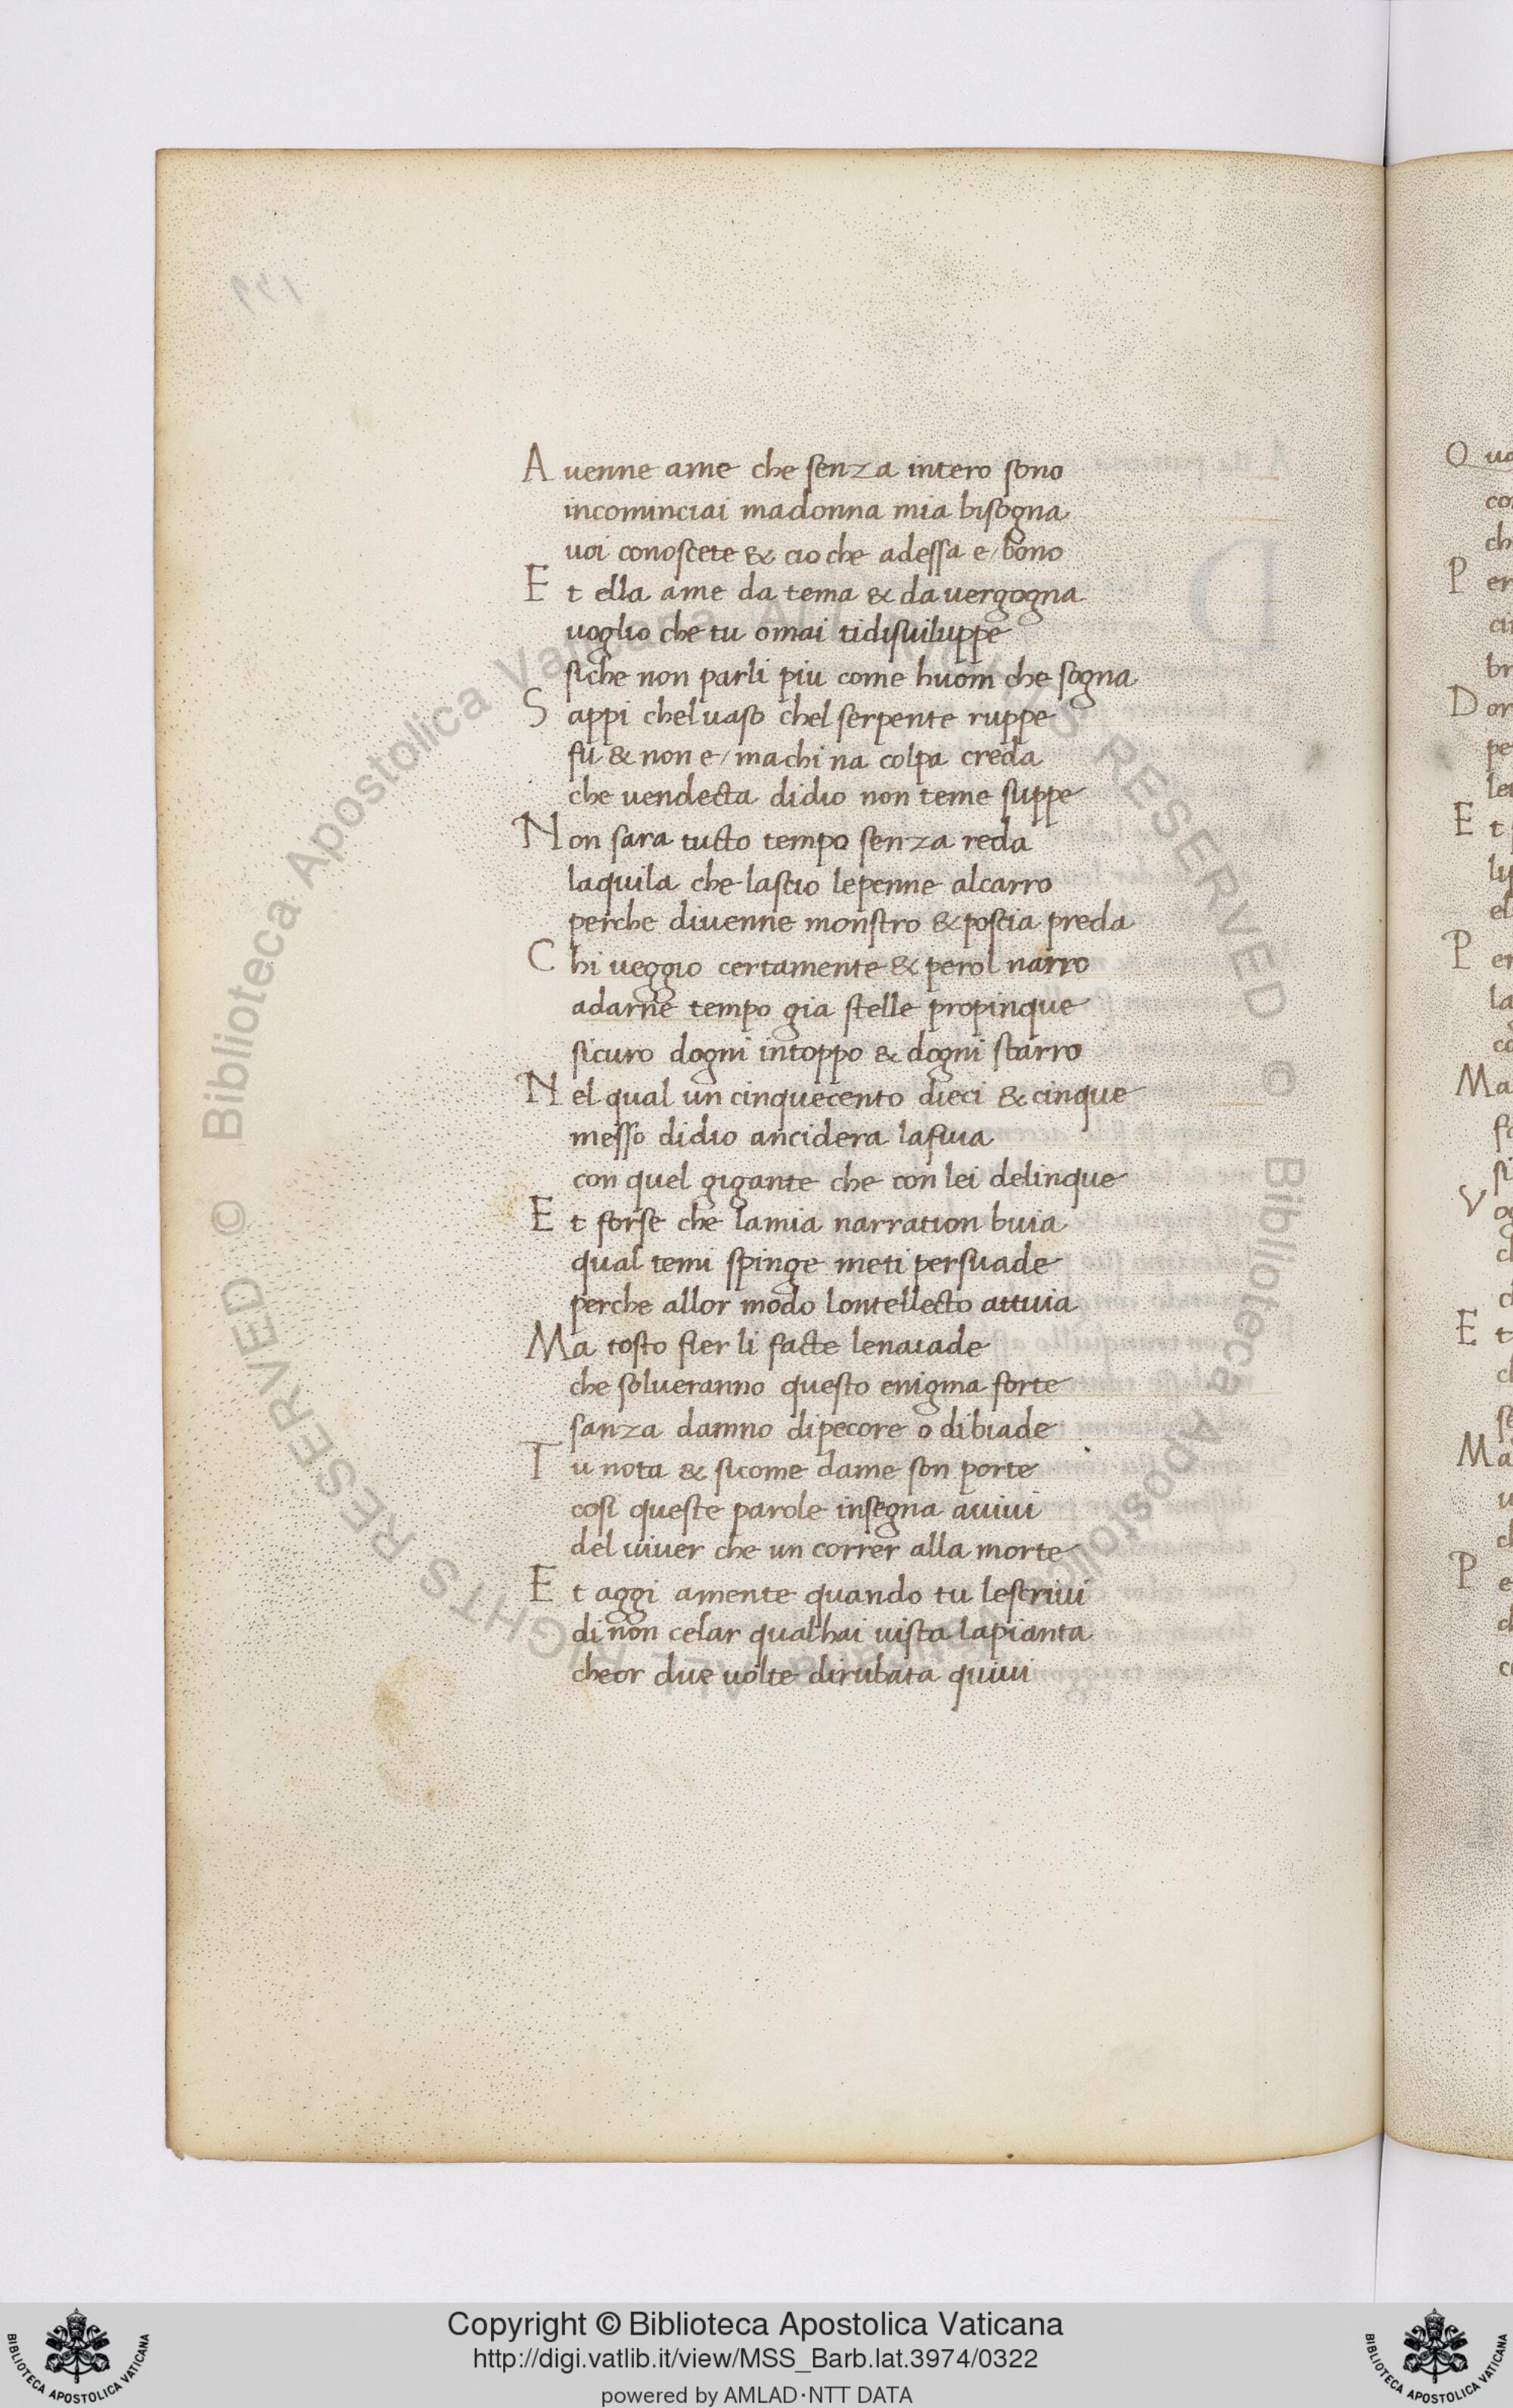 Avenne ame che senza intero sono
incominciai madonna mia bisogna
uoi conoscete & cio che adessa e/bono
Et ella ame da tema & da uergogna
uoglio che tu omai tidisuiluppe
siche non parli piu come huom che sogna
Sappi chel uaso chel serpente ruppe
fu & non e/ ma chi na colpa creda
che uendecta didio non teme suppe
Non sara tucto tempo senza reda
laquila che lascio lepenne alcarro
perche diuenne monstro & poscia preda
Chi ueggio certamente & perol narro
adarne tempo gia stelle propinque
sicuro dogni intoppo & dogni starro
Nel qual un cinquecento dieci & cinque
messo didio anciderà lafuia
con quel gigante che con lei delinque
Et forse che lamia narration buia
qual temi spinge meti persuade
perche allor modo lontellecto attuia
Ma tosto fier li facte lenaiade
che solueranno questo enigma forte
sanza damno dipecore o dibiade
Tu nota & sicome dame son porte
cosi queste parole insegna auiui
del uiuer che un correr alla morte
Et aggi amente quando tu lescriui
di non celar qual hai uista lapianta
cheor due uolte dirubata quiui
Copyright © Biblioteca Apostolica Vaticana
http://digi.vatlib.it/view/MSS_Barb.lat.3974/0322
powered by AMLAD·NTT DATA